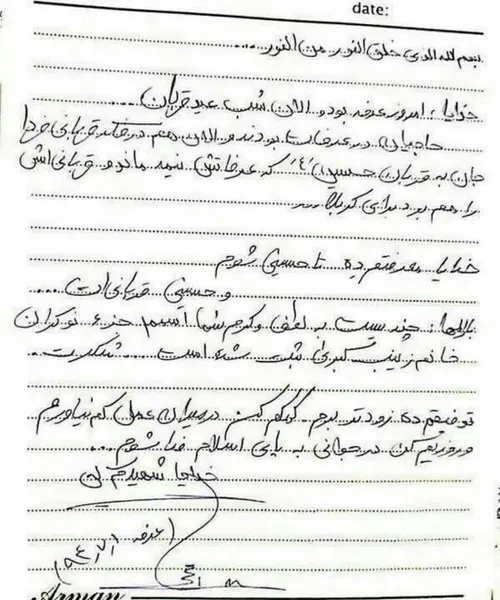 date:
بسم الله الذی خلق النور من النور...
خدایا، امروز عرفه بود و الان شب عید قربان...
حاجیان در عرفات بودند و الان هم در فکر قربانی فردا
جان به قربان حسین (ع) که عرفاتش نیمه ماند و قربانی‌اش
را هم برد برای کربلا...
خدایا معرفتم ده تا حسینی شوم
و حسینی قربانی‌ات...
بارالها، چندیست به لطف و کرم شما اسمم جزء نوکران
خانم زینب کبری ثبت شده است... شکرت...
توفیقم ده زودتر بروم. کمکم کن در میدان عمل کم نیاورم
و روزیم کن در جوانی به پای اسلام فدا شوم...
خدایا شهیدم کن
(عرفه ۹۴/۷/۱)
Arman